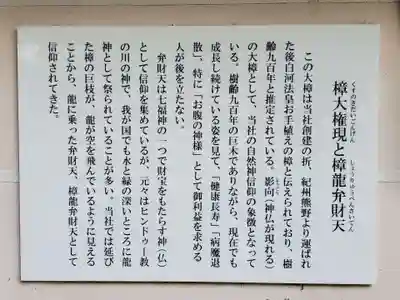 樟大権現と樟龍弁財天
くすのきだいごんげん
しょうりゅうべんざいてん
この大樟は当社創建の折、紀州熊野より運ばれ
た後白河法皇お手植えの樟と伝えられており、樹
齢九百年と推定されている。影向（神仏が現れる）
の大樟として、当社の自然神信仰の象徴となって
いる。樹齢九百年の巨木でありながら、現在でも
成長し続けている姿を見て、「健康長寿」「病魔退
散」、特に「お腹の神様」として御利益を求める
人が後を立たない。
弁財天は七福神の一つで財宝をもたらす神（仏）
として信仰を集めているが、元々はヒンドゥー教
の川の神で、我が国でも水と縁の深いところに龍
神として祭られていることが多い。当社では延び
た樟の巨枝が、龍が空を飛んでいるように見える
ことから、龍に乗った弁財天、樟龍弁財天として
信仰されてきた。